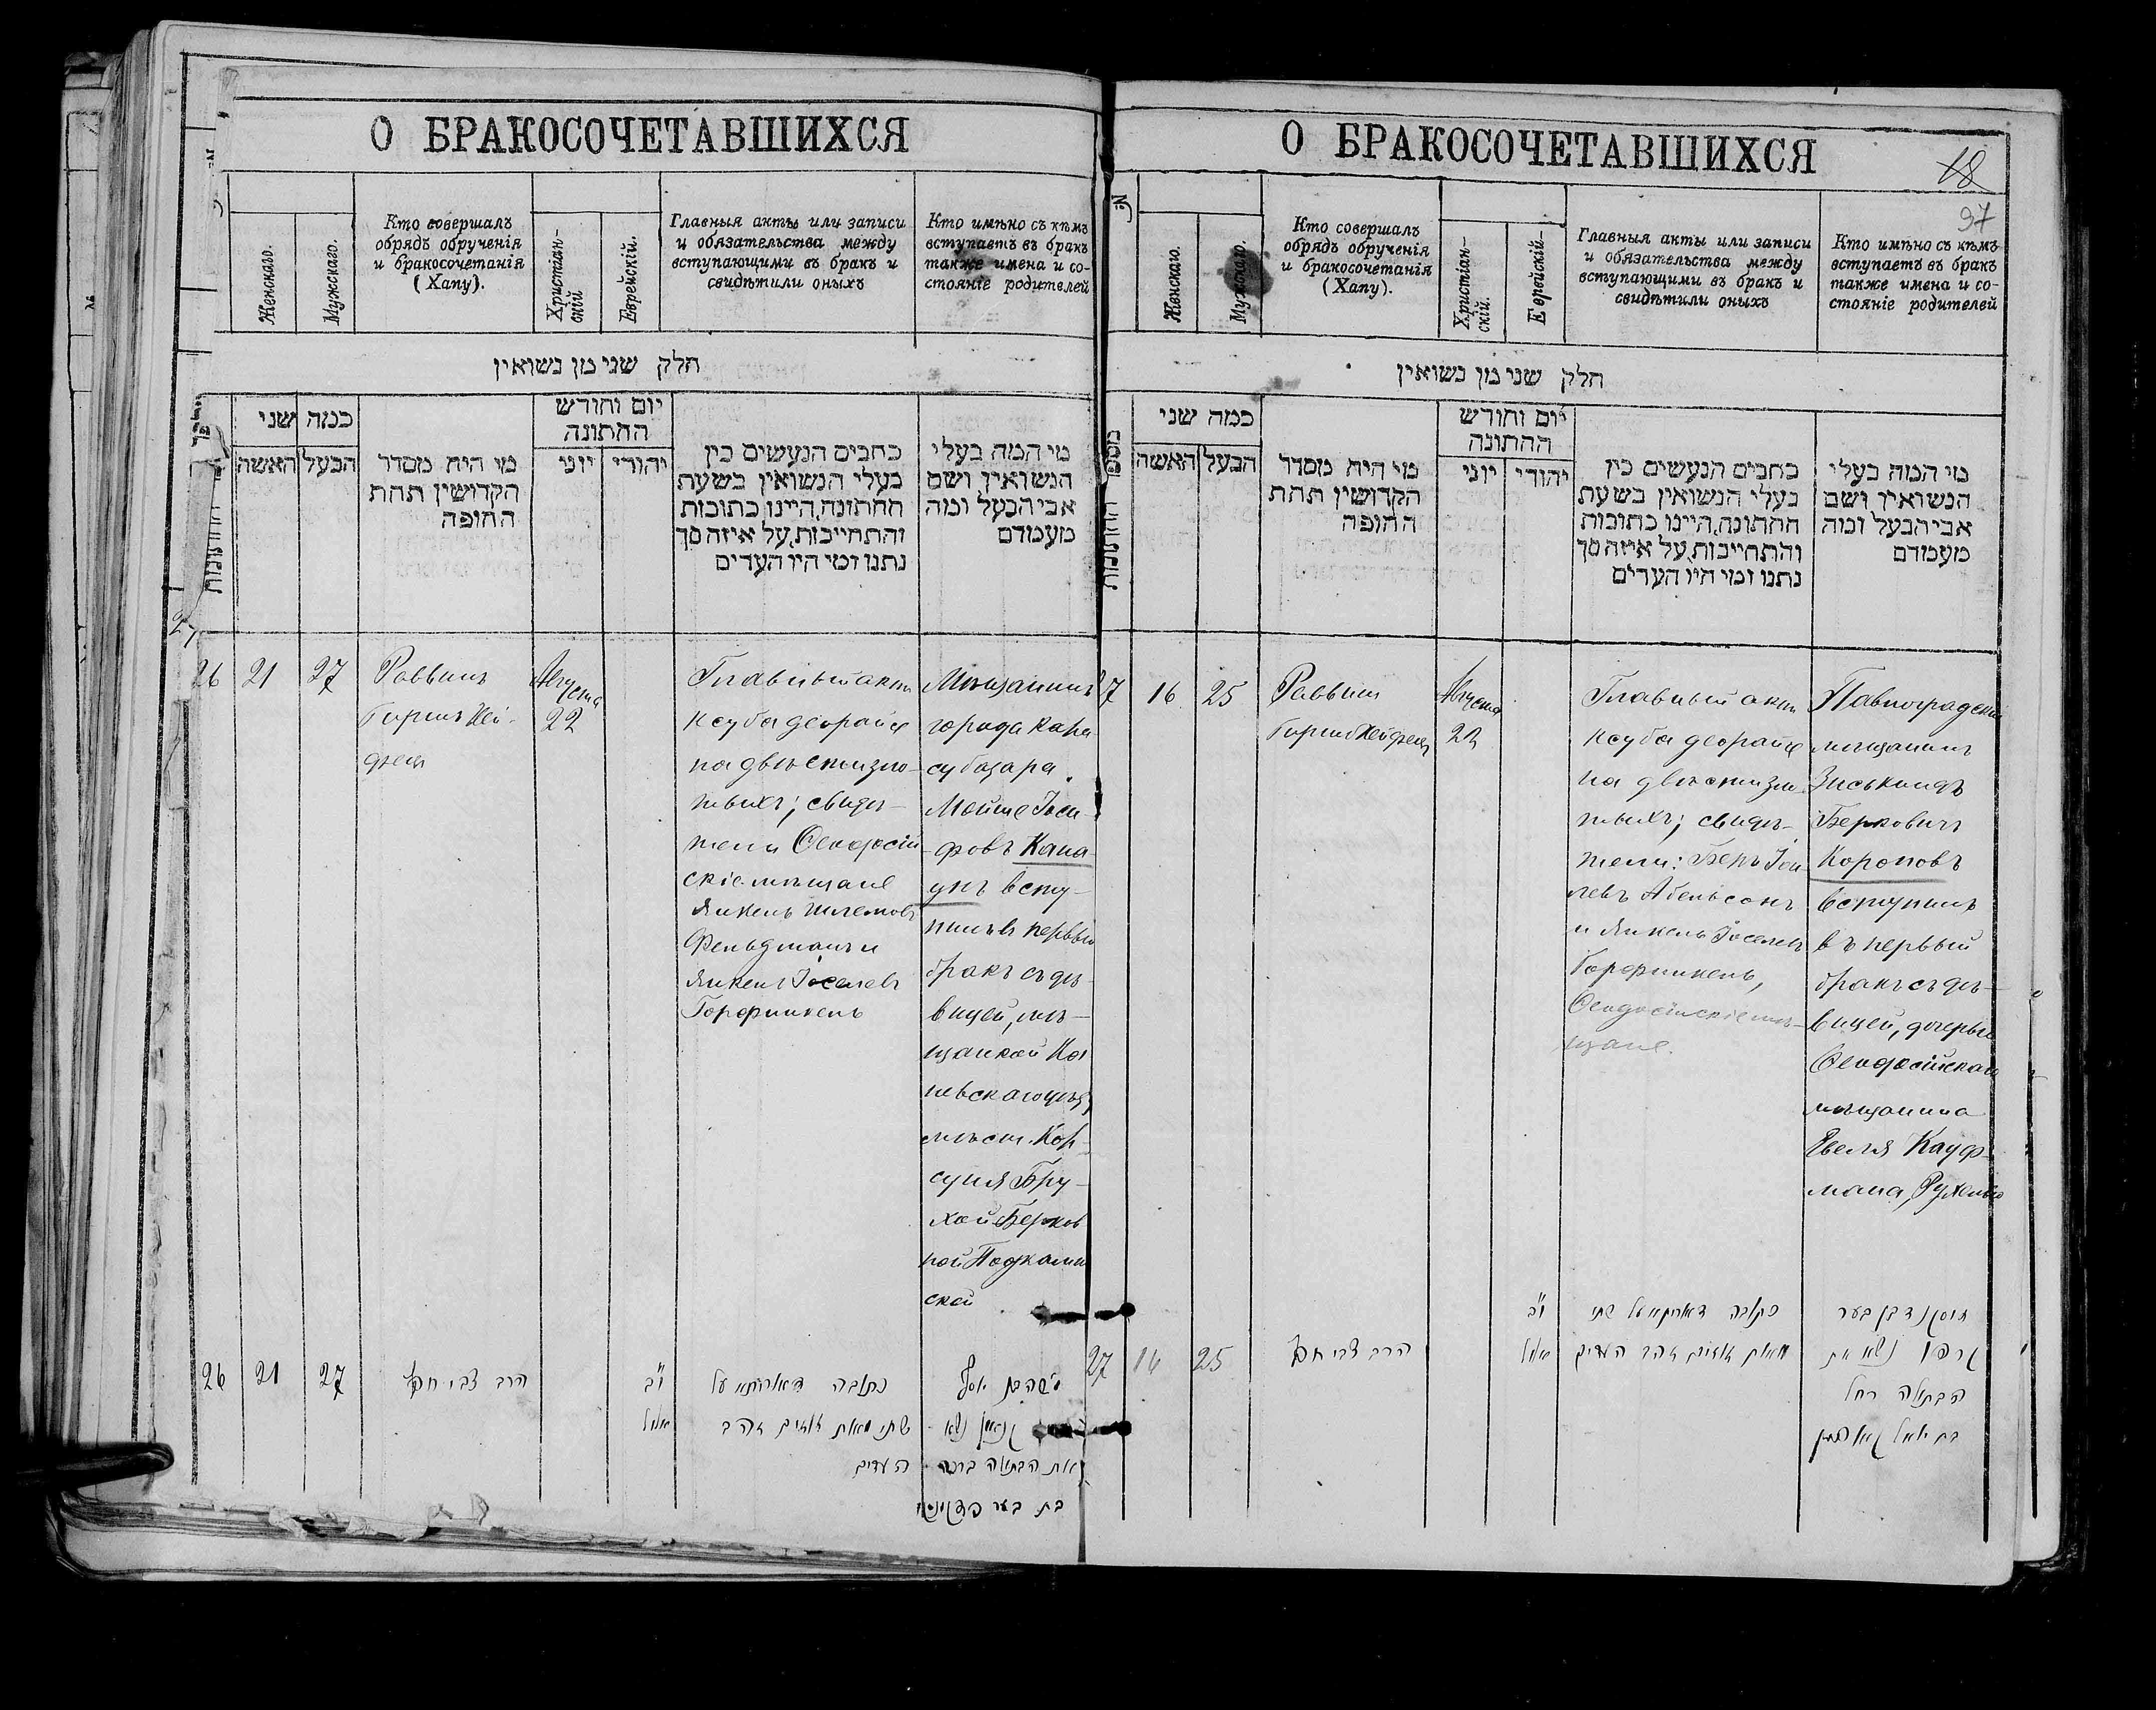 О БРАКОСОЧЕТАВШИХСЯ
Женскаго.
Мужскаго.
Кто совершалъ
обрядъ обрученія
и бракосочетанія
(Хапу).
Христіан-
скій
Еврейскій.
Главныя акты или записи
и обязательства между
вступающими въ бракъ и
свидѣтили оныхъ
Кто имѣно съ кѣмъ
вступаетъ въ бракъ
также имена и со-
стояніе родителей
חלק שני מן נשואין
כמה שני
האשה
הבעל
מי היה מסדר
הקדושין תחת
החופה
יום וחודש
החתונה
יוני
יהודי
כתבים הנעשים בין
בעלי הנשואין בשעת
החתונה, היינו כתובות
והתחייבות, על איזה סך
נתנו ומי היו העדים
מי המה בעלי
הנשואין ושם
אבי הבעל ומה
מעמדם
26
21
27
Раввинъ
Гиршъ Хей-
фецъ
Августа
22
Главный актъ
ксуба деорайсе
на двѣсти зло-
тыхъ; свидѣ-
тели Ѳеодосій
скіе мѣщане
Янкель Шлемовъ
Фельдманъ и
Янкель Іоселевъ
Горфинкель
Мѣщанинъ
города Кара
субазара
Мойше Іоси-
фовъ Кана
вступ-
пилъ въ первый
бракъ съ дѣ-
вицей, мѣ-
щанкой Ка
невскаго уѣзд
мѣст. Кор-
суня Бру-
хой Берков
ной Подкамин
ской
26
21
27
הרב צבי חפץ
י"ב
אלול
כתובה דאורייתא על
שתי מאות זוזים זהב
העדים
משה בן יוסף
נשא
את הבתולה ברכה
בת בער
О БРАКОСОЧЕТАВШИХСЯ
18
97
№
Женскаго.
Мужскаго.
Кто совершалъ
обрядъ обрученія
и бракосочетанія
(Хапу).
Христіан-
скій.
Еврейскій-
Главныя акты или записи
и обязательства между
вступающими въ бракъ и
свидѣтили оныхъ
Кто имѣно съ кѣмъ
вступаетъ въ бракъ
также имена и со-
стояніе родителей
חלק שני מן נשואין
כמה שני
האשה
הבעל
מי היה מסדר
הקדושין תחת
החופה
יום וחודש
החתונה
יוני
יהודי
כתבים הנעשים בין
בעלי הנשואין בשעת
החתונה, היינו כתובות
והתחייבות, על איזה סך
נתנו ומי היו העדים
מי המה בעלי
הנשואין ושם
אבי הבעל ומה
מעמדם
27
16
25
Раввинъ
Гиршъ Хейфецъ
Августа
22
Главный актъ
ксуба деорайсе
на двѣсти зло-
тыхъ; свидѣ-
тели: Беръ Іои
левъ Абельсонъ
и Янкель Іоселевъ
Горфинкель,
Ѳеодосійскіе мѣ-
щане.
Павлоградскій
мѣщанинъ
Зиськиндъ
Берковичъ
Короповъ
вступилъ
въ первый
бракъ съ дѣ-
вицей, дочерью
Ѳеодосійскаго
мѣщанина
Евеля Кауф-
мана, Рухелью
27
16
25
הרב צבי חפץ
י"ב
אלול
כתובה דאורייתא על שתי
מאות זוזים זהב העדים
זיסקינד בן בער
נשא את
הבתולה רחל
בת יואל קאופמן